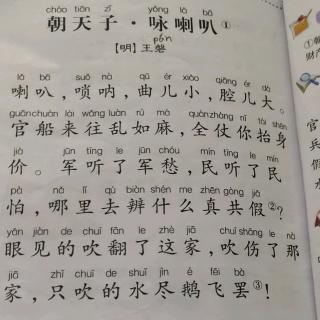 cháo tiān zǐ yǒng lǎ bā
朝天子·咏喇叭①
pán
【明】王磐
lǎ bā suǒ nà qǔ ér xiǎo qiāng ér dà
喇叭，唢呐，曲儿小，腔儿大。
guānchuán lái wǎng luàn rú má quánzhàng nǐ tái shēn
官船来往乱如麻，全仗你抬身
jià jūn tīng le jūn chóu mín tīng le mín
价。军听了军愁，民听了民
pà nǎ lǐ qù biàn shén me zhēn gòng jiǎ
怕，哪里去辨什么真共假②？
yǎn jiàn de chuī fān le zhè jiā chuī shāng le nà
眼见的吹翻了这家，吹伤了那
jiā zhǐ chuī de shuǐ jìn é fēi bà
家，只吹的水尽鹅飞罢③！
①
财产
官
兵
怕